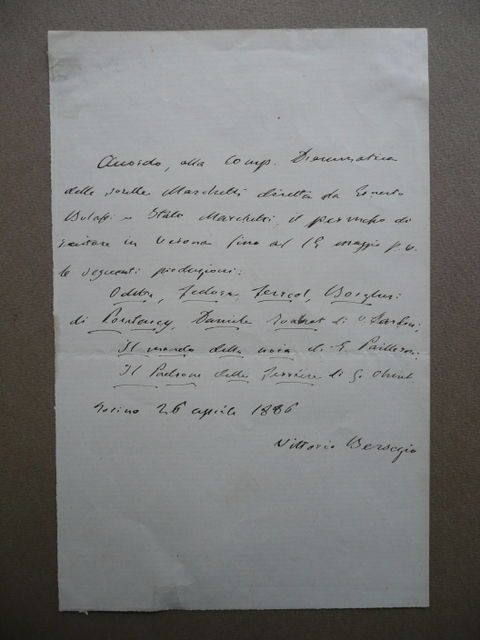 Accordo, alla Comp. Drammatica
delle sorelle Marchetti diretta da Ernesto
e Italo Marchetti, il permesso di
recitare in Verona fino al 15 maggio p. v.
le seguenti produzioni:
Odette, Fedora, Ferréol, Borghesi
di Pontarcy, Daniele Rochat di V. Sardou.
Il mondo della noia di E. Pailleron.
Il Padrone delle Ferriere di G. Ohnet
Torino 26 aprile 1886
Vittorio Bersezio